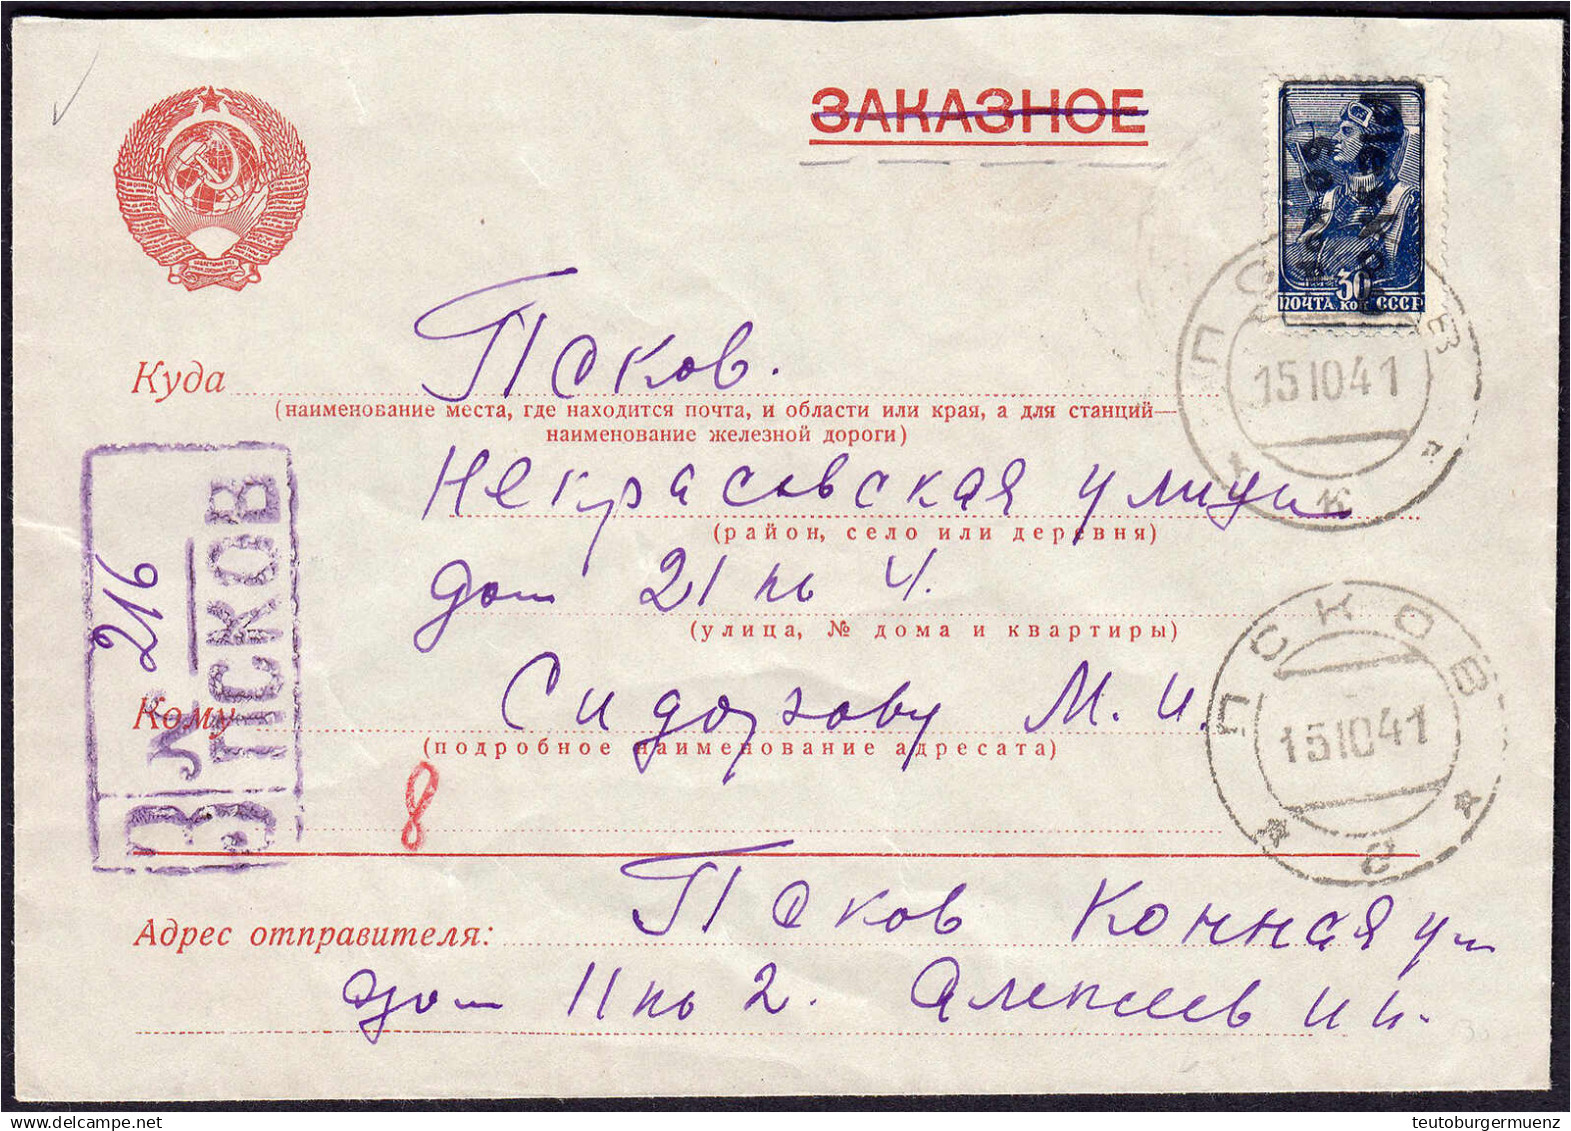 ЗАКАЗНОЕ
30
ПОЧТА КОП. СССР
ПСКОВ
15 10 41
Куда Псков.
(наименование места, где находится почта, и области или края, а для станций—
наименование железной дороги)
Некрасовская улица
(район, село или деревня)
дом 21 кв 4.
(улица, № дома и квартиры)
Кому Сидорову М. И.
(подробное наименование адресата)
ПСКОВ
15 10 41
а
З ПСКОВ
№ 216
8
Адрес отправителя: Псков Конная ул
дом 11 кв 2. Алексеев И И.
teutoburgermuenz